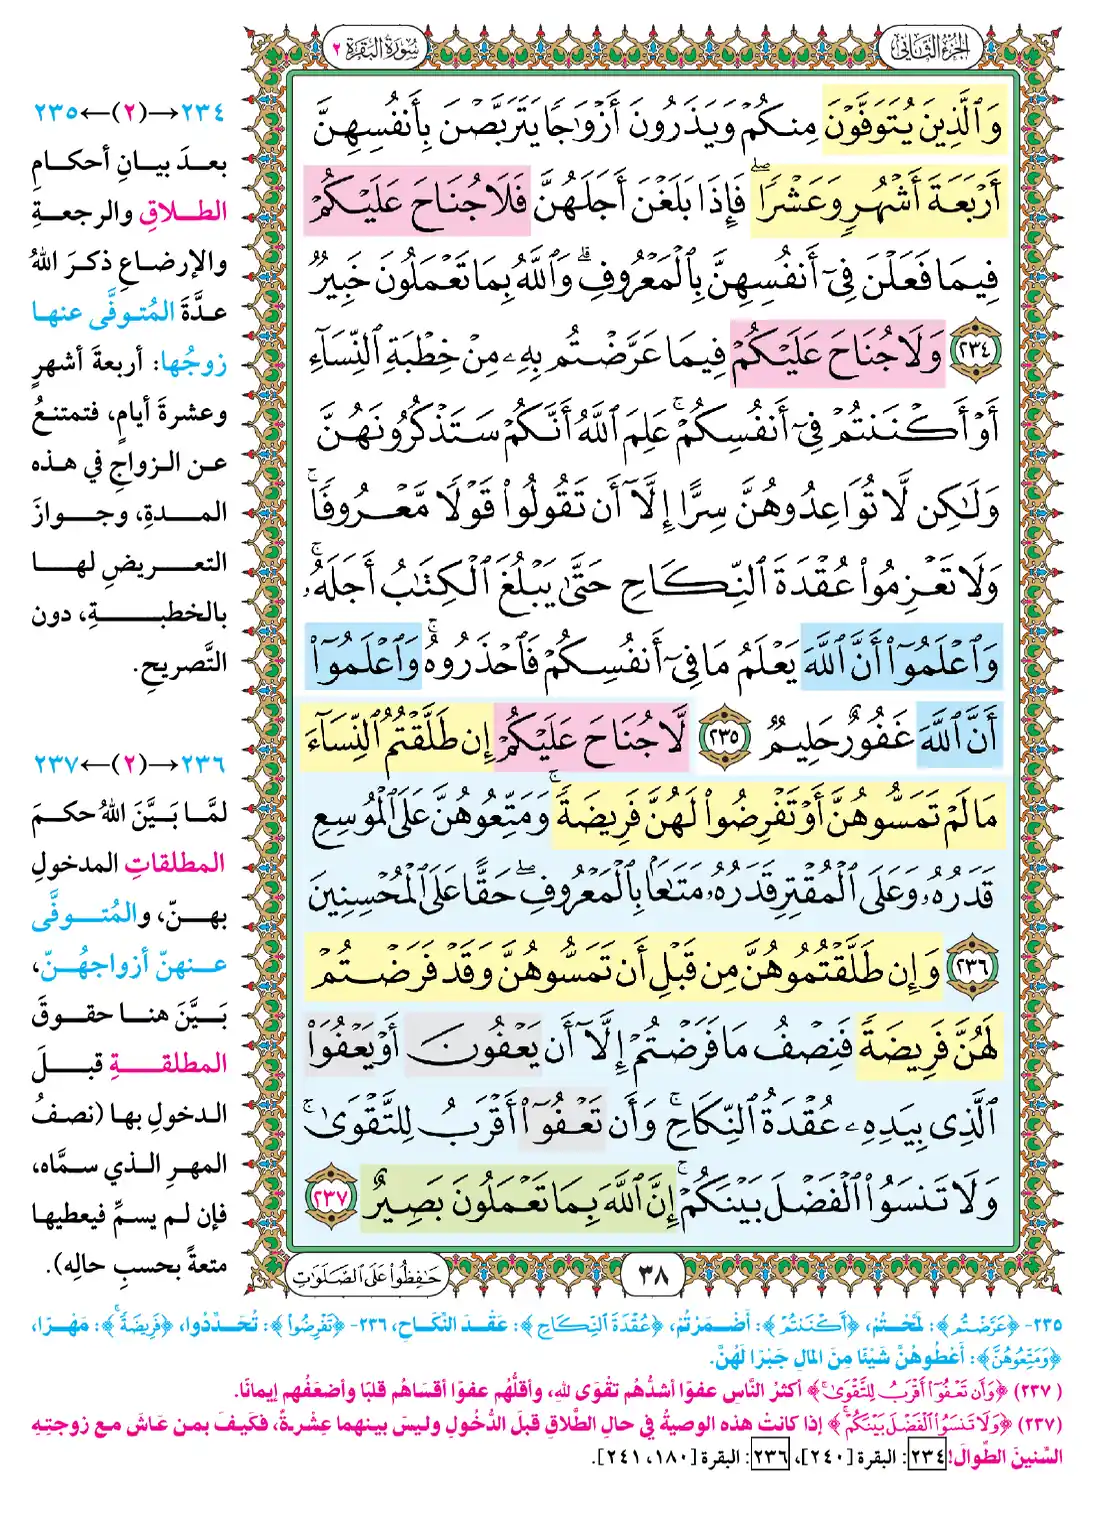 الجزء الثاني
سورة البقرة ٢
وَٱلَّذِينَ يُتَوَفَّوۡنَ مِنكُمۡ وَيَذَرُونَ أَزۡوَٰجٗا يَتَرَبَّصۡنَ بِأَنفُسِهِنَّ
أَرۡبَعَةَ أَشۡهُرٖ وَعَشۡرٗاۖ فَإِذَا بَلَغۡنَ أَجَلَهُنَّ فَلَا جُنَاحَ عَلَيۡكُمۡ
فِيمَا فَعَلۡنَ فِيٓ أَنفُسِهِنَّ بِٱلۡمَعۡرُوفِۗ وَٱللَّهُ بِمَا تَعۡمَلُونَ خَبِيرٞ
٢٣٤ وَلَا جُنَاحَ عَلَيۡكُمۡ فِيمَا عَرَّضۡتُم بِهِۦ مِنۡ خِطۡبَةِ ٱلنِّسَآءِ
أَوۡ أَكۡنَنتُمۡ فِيٓ أَنفُسِكُمۡۚ عَلِمَ ٱللَّهُ أَنَّكُمۡ سَتَذۡكُرُونَهُنَّ
وَلَٰكِن لَّا تُوَاعِدُوهُنَّ سِرًّا إِلَّآ أَن تَقُولُواْ قَوۡلٗا مَّعۡرُوفٗاۚ
وَلَا تَعۡزِمُواْ عُقۡدَةَ ٱلنِّكَاحِ حَتَّىٰ يَبۡلُغَ ٱلۡكِتَٰبُ أَجَلَهُۥۚ
وَٱعۡلَمُوٓاْ أَنَّ ٱللَّهَ يَعۡلَمُ مَا فِيٓ أَنفُسِكُمۡ فَٱحۡذَرُوهُۚ وَٱعۡلَمُوٓاْ
أَنَّ ٱللَّهَ غَفُورٌ حَلِيمٞ ٢٣٥ لَّا جُنَاحَ عَلَيۡكُمۡ إِن طَلَّقۡتُمُ ٱلنِّسَآءَ
مَا لَمۡ تَمَسُّوهُنَّ أَوۡ تَفۡرِضُواْ لَهُنَّ فَرِيضَةٗۚ وَمَتِّعُوهُنَّ عَلَى ٱلۡمُوسِعِ
قَدَرُهُۥ وَعَلَى ٱلۡمُقۡتِرِ قَدَرُهُۥ مَتَٰعَۢا بِٱلۡمَعۡرُوفِۖ حَقًّا عَلَى ٱلۡمُحۡسِنِينَ
٢٣٦ وَإِن طَلَّقۡتُمُوهُنَّ مِن قَبۡلِ أَن تَمَسُّوهُنَّ وَقَدۡ فَرَضۡتُمۡ
لَهُنَّ فَرِيضَةٗ فَنِصۡفُ مَا فَرَضۡتُمۡ إِلَّآ أَن يَعۡفُونَ أَوۡ يَعۡفُوَاْ
ٱلَّذِي بِيَدِهِۦ عُقۡدَةُ ٱلنِّكَاحِۚ وَأَن تَعۡفُوٓاْ أَقۡرَبُ لِلتَّقۡوَىٰۚ
وَلَا تَنسَوُاْ ٱلۡفَضۡلَ بَيۡنَكُمۡۚ إِنَّ ٱللَّهَ بِمَا تَعۡمَلُونَ بَصِيرٌ ٢٣٧
٣٨
حَٰفِظُواْ عَلَى ٱلصَّلَوَٰتِ
٢٣٤→(٢)←٢٣٥
بعدَ بيانِ أحكامِ
الطلاقِ والرجعةِ
والإرضاعِ ذكرَ اللهُ
عدَّةَ المُتوفَّى عنها
زوجُها: أربعةَ أشهرٍ
وعشرةَ أيامٍ، فتمتنعُ
عن الزواجِ في هذه
المدةِ، وجوازَ
التعريضِ لها
بالخطبةِ، دون
التَّصريحِ.
٢٣٦→(٢)←٢٣٧
لمَّا بَيَّنَ اللهُ حكمَ
المطلقاتِ المدخولِ
بهنّ، والمُتوفَّى
عنهنّ أزواجهُنّ،
بَيَّنَ هنا حقوقَ
المطلقةِ قبلَ
الدخولِ بها (نصفُ
المهرِ الذي سمَّاه،
فإن لم يسمِّ فيعطيها
متعةً بحسبِ حالِه).
٢٣٥- ﴿عَرَّضۡتُم﴾: لَمَّحْتُمْ، ﴿أَكۡنَنتُمۡ﴾: أَضْمَرْتُمْ، ﴿عُقۡدَةَ ٱلنِّكَاحِ﴾: عَقْدَ النِّكَاحِ، ٢٣٦- ﴿تَفۡرِضُواْ﴾: تُحَدِّدُوا، ﴿فَرِيضَةٗۚ﴾: مَهْرًا،
﴿وَمَتِّعُوهُنَّ﴾: أَعْطُوهُنَّ شَيْئًا مِنَ المَالِ جَبْرًا لَهُنَّ.
(٢٣٧) ﴿وَأَن تَعۡفُوٓاْ أَقۡرَبُ لِلتَّقۡوَىٰۚ﴾ أكثرُ النَّاسِ عفوًا أشدُّهم تقْوَى للهِ، وأقلُّهم عفوًا أقسَاهُم قلبًا وأضعَفُهم إيمانًا.
(٢٣٧) ﴿وَلَا تَنسَوُاْ ٱلۡفَضۡلَ بَيۡنَكُمۡۚ﴾ إذا كانتْ هذه الوصيةُ في حالِ الطَّلاقِ قبلَ الدُّخُولِ وليسَ بينهما عِشْرةٌ، فكَيفَ بمن عَاشَ مع زوجتِهِ
السِّنينَ الطِّوالَ! ٢٣٤: البقرة [٢٤٠]، ٢٣٦: البقرة [١٨٠، ٢٤١].